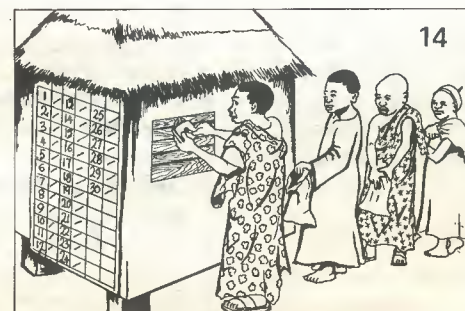 14
1 13 25
2 14 26
3 15 27
4 16 28
5 17 29
6 18 30
7 19
8 20
9 21
10 22
11 23
12 24